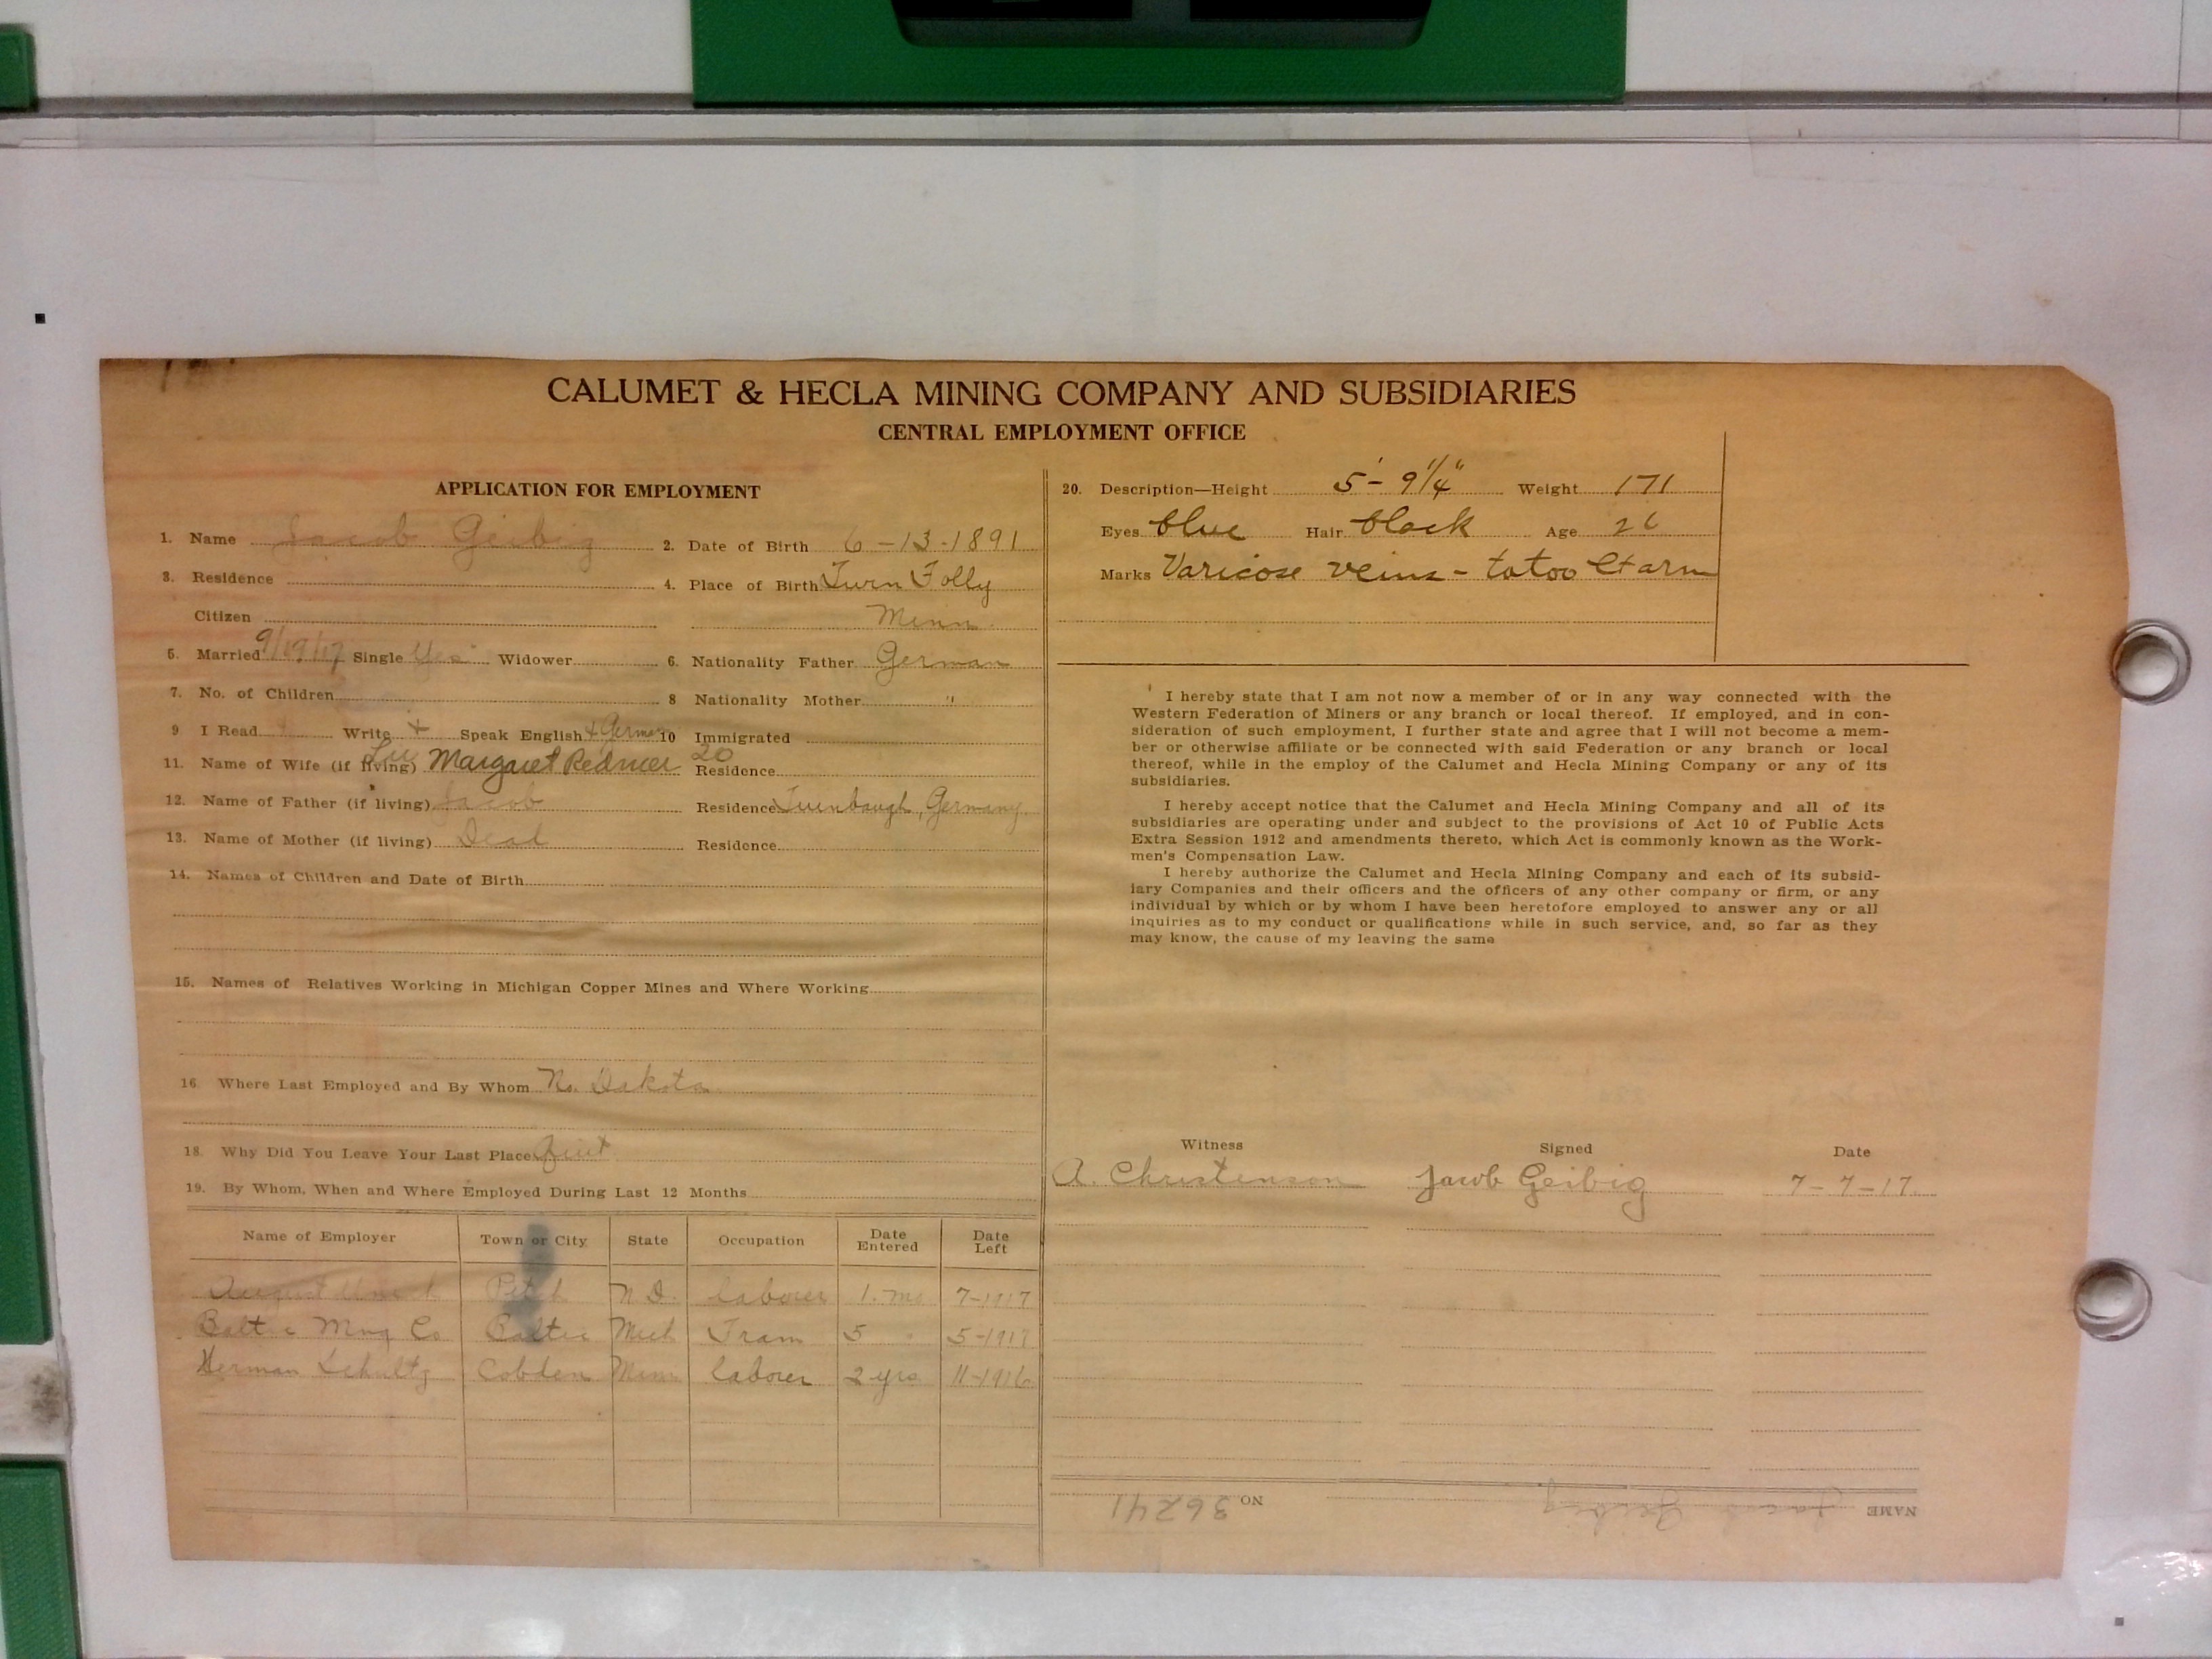 CALUMET & HECLA MINING COMPANY AND SUBSIDIARIES
CENTRAL EMPLOYMENT OFFICE
APPLICATION FOR EMPLOYMENT
1. Name Jacob Geibig 2. Date of Birth 6-13-1891
3. Residence 4. Place of Birth Folly
Citizen Minn.
5. Married 9/19/17 Single Yes Widower 6. Nationality Father German
7. No. of Children 8 Nationality Mother "
9 I Read Write + Speak English + German 10 Immigrated
11. Name of Wife (if living) Margaret 20 Residence
12. Name of Father (if living) Jacob Residence Germany
13. Name of Mother (if living) Dead Residence
14. Names of Children and Date of Birth
15. Names of Relatives Working in Michigan Copper Mines and Where Working
16. Where Last Employed and By Whom No. Dakota
18. Why Did You Leave Your Last Place Quit
19. By Whom, When and Where Employed During Last 12 Months
Name of Employer Town or City State Occupation Date Entered Date Left
August N D. laborer 1. mo 7-1917
Baltic Mng Co Baltic Mich Tram 5 5-1917
Herman Schultz Cobden Minn laborer 2 yrs 11-1916
20. Description—Height 5'-9 1/4" Weight 171
Eyes blue Hair black Age 26
Marks Varicose veins - tatoo lt arm
I hereby state that I am not now a member of or in any way connected with the
Western Federation of Miners or any branch or local thereof. If employed, and in con-
sideration of such employment, I further state and agree that I will not become a mem-
ber or otherwise affiliate or be connected with said Federation or any branch or local
thereof, while in the employ of the Calumet and Hecla Mining Company or any of its
subsidiaries.
I hereby accept notice that the Calumet and Hecla Mining Company and all of its
subsidiaries are operating under and subject to the provisions of Act 10 of Public Acts
Extra Session 1912 and amendments thereto, which Act is commonly known as the Work-
men's Compensation Law.
I hereby authorize the Calumet and Hecla Mining Company and each of its subsid-
iary Companies and their officers and the officers of any other company or firm, or any
individual by which or by whom I have been heretofore employed to answer any or all
inquiries as to my conduct or qualifications while in such service, and, so far as they
may know, the cause of my leaving the same
Witness Signed Date
A. Christenson Jacob Geibig 7-7-17.
NAME Jacob Geibig NO. 36241